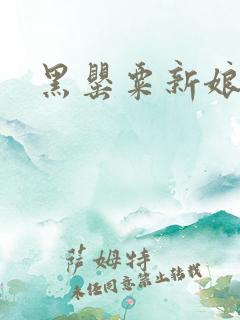 黑罂粟新娘
萨姆特
未经同意禁止转载